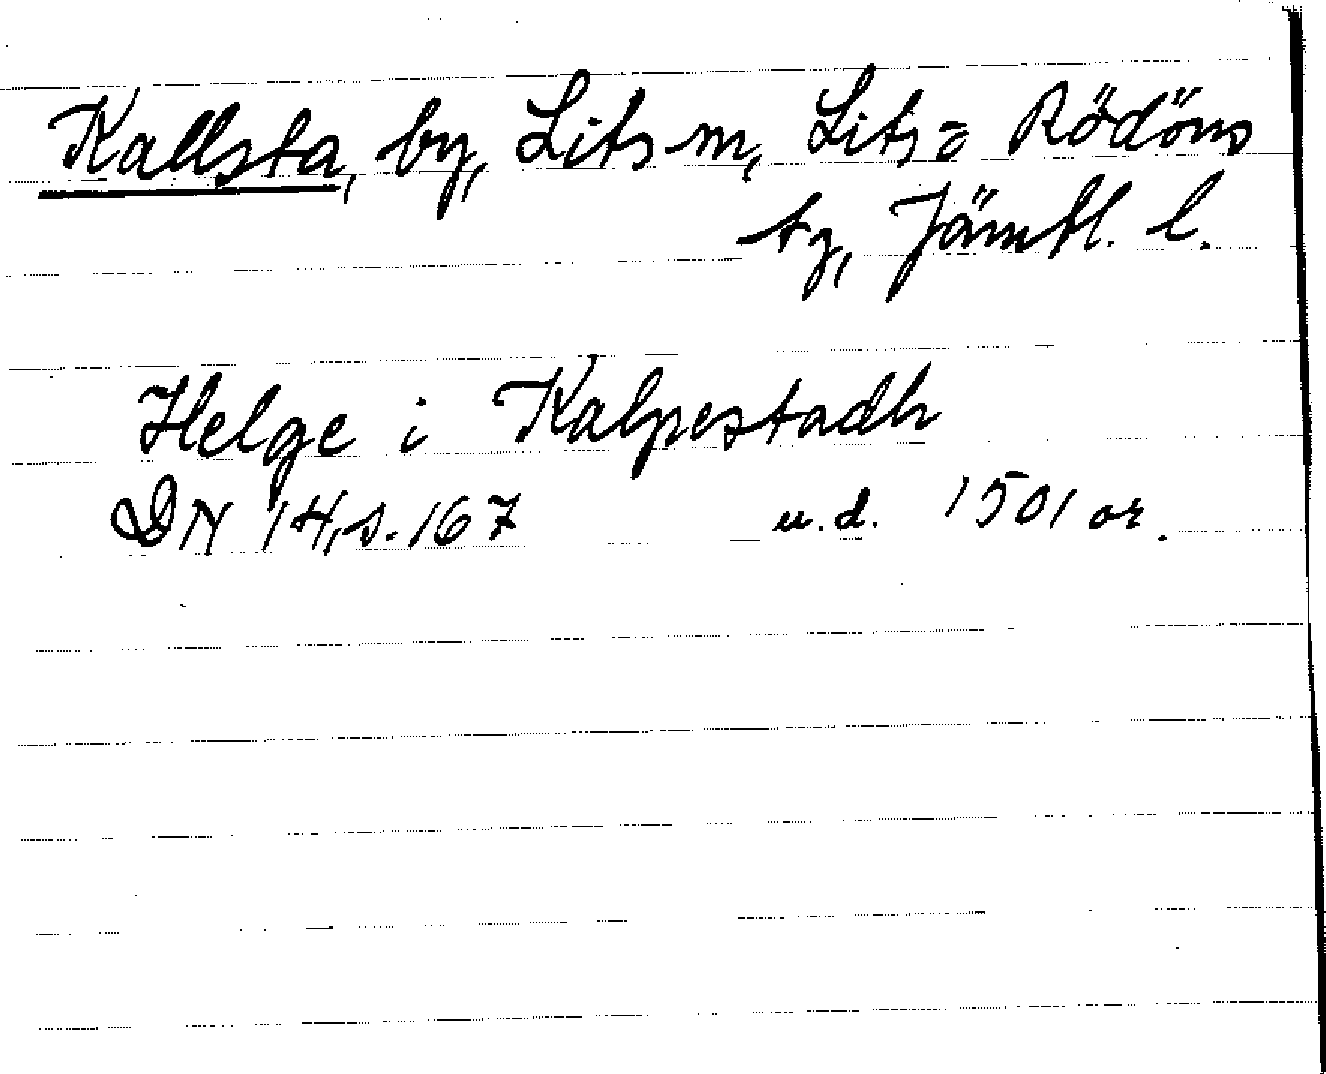 Kallsta, by, Lits sn, Lits= Rödöns
tg, Jämtl. l.
Helge i Kalpestadh
DN 14, s. 167 u.d. 1501 or.